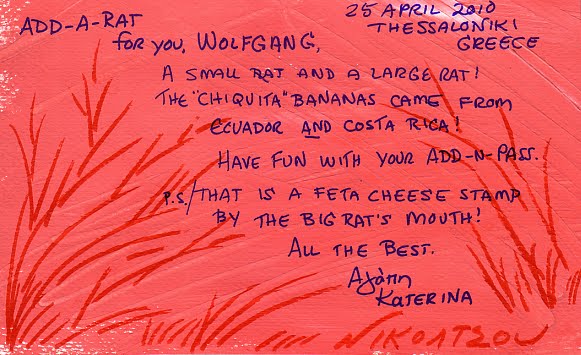 ADD-A-RAT
25 APRIL 2010
THESSALONIKI
GREECE
for you, WOLFGANG,
A SMALL RAT AND A LARGE RAT!
THE "CHIQUITA" BANANAS CAME FROM
ECUADOR AND COSTA RICA!
HAVE FUN WITH YOUR ADD-N-PASS.
P.S./ THAT IS A FETA CHEESE STAMP
BY THE BIG RAT'S MOUTH!
ALL THE BEST.
Αγάπη
KATERINA
ΝΙΚΟΛΤΣΟΥ